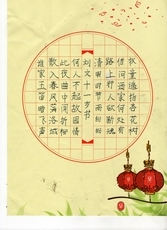 谁家玉笛暗飞声
散入春风满洛城
此夜曲中闻折柳
何人不起故园情
刘文十一岁书
清明时节雨纷纷
路上行人欲断魂
借问酒家何处有
牧童遥指杏花村